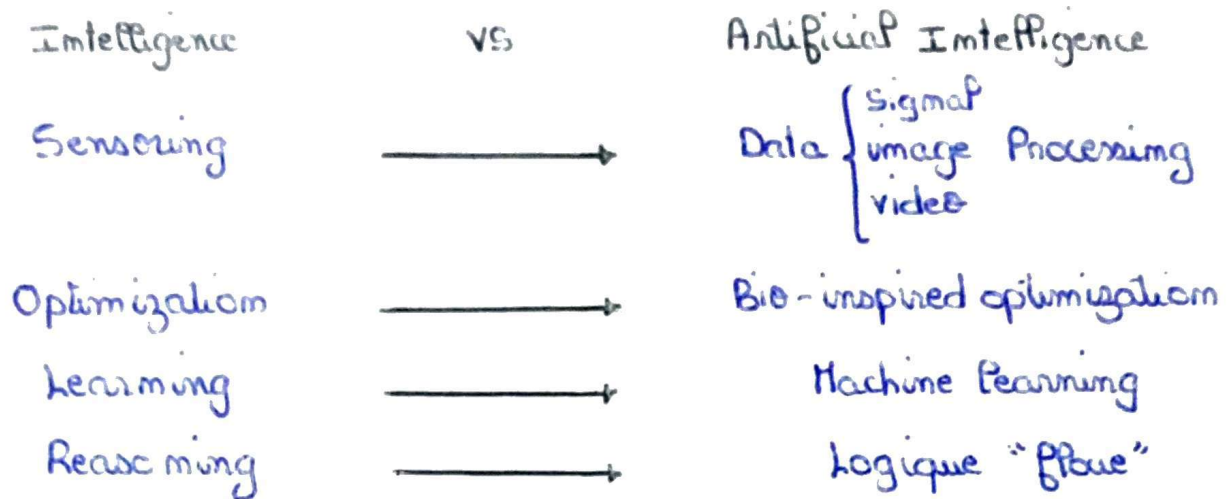 Intelligence vs Artificial Intelligence
signal
Sensoring Data image Processing
video
Optimization Bio-inspired optimization
Learning Machine learning
Reasoning Logique "floue"